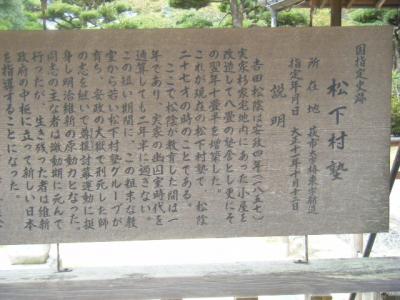 国指定史跡
松下村塾
所在地 萩市大字椿東字新道
指定年月日 大正十一年十月十二日
説明
吉田松陰は安政四年(一八五七)
実家杉家宅地内にあった小屋を
改造して八畳の塾舎とし更にそ
の翌年十畳半を増築した。
これが現在の松下村塾で 松陰
二十七才の時のことである。
ここで松陰が教育した間は一
年であり、実家の幽囚室時代を
通算しても二年半に過ぎない。
この短い期間に、この粗末な教
室から若い松下村塾グループが
育ち、安政の大獄で刑死した師
の志を継いで尊攘討幕運動に挺
身し明治維新の原動力となった。
同志の主な者は激動期に死んで
行ったが、生き残った者は維新
政府の中枢に立って新しい日本
を指導することになった。